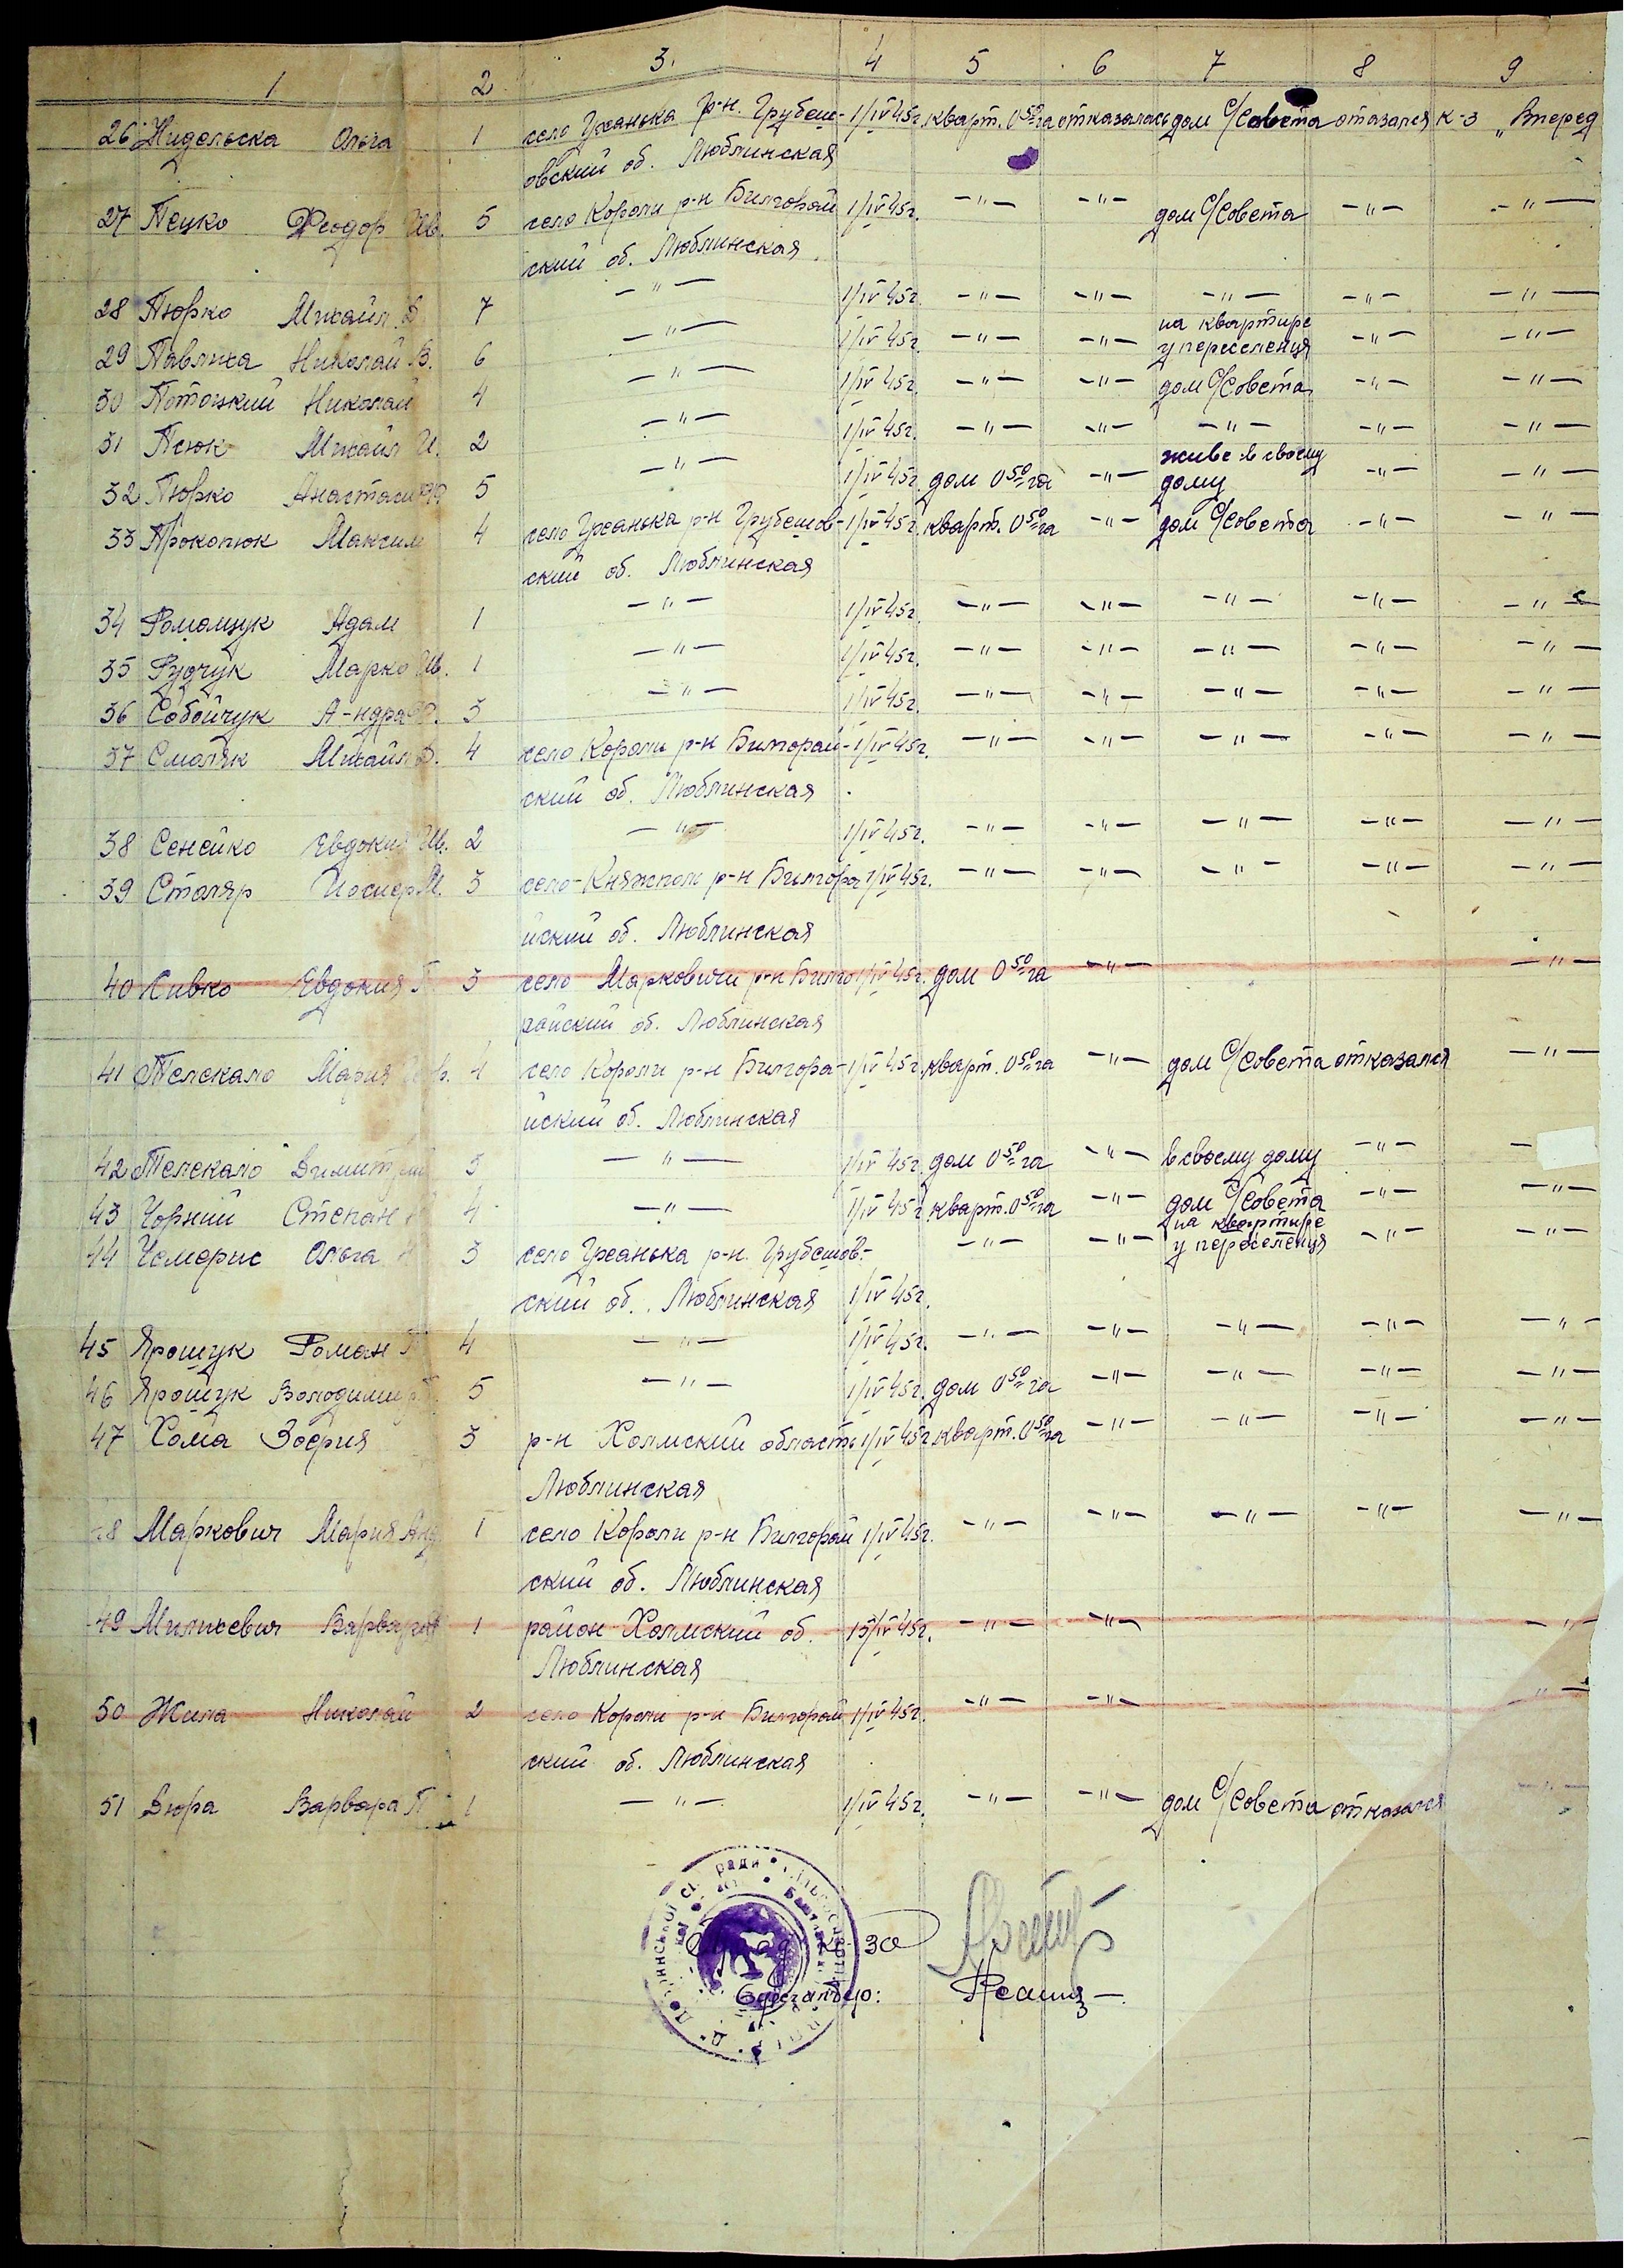 1 2 3. 4 5 6 7 8 9
26 Нидельска Ольга 1 село Уханька р-н. Грубеш- 1/IV 45г. кварт. 0,50 га отказалась дом С/Совета отазался к-з "Вперед
овский об. Люблинская
27 Пецко Феодор Ив. 5 село Короли р-н Билгорай 1/IV 45г. -"- -"- дом С/Совета -"- -"-
ский об. Люблинская
28 Пюрко Михайл 7 -"- 1/IV 45г. -"- -"- -"- -"- -"-
на квартире
29 Павлиха Николай В. 6 -"- 1/IV 45г. -"- -"- у переселенця -"- -"-
30 Потоцкий Николай 4 -"- 1/IV 45г. -"- -"- дом С/Совета -"- -"-
31 Псюк Михайл И. 2 -"- 1/IV 45г. -"- -"- -"- -"- -"-
живе в своему
32 Пюрко 5 -"- 1/IV 45г. дом 0,50 га -"- дому -"- -"-
33 Прокопюк Максим 4 село Уханька р-н Грубешов- 1/IV 45г. кварт. 0,50 га -"- дом С/Совета -"- -"-
ский об. Люблинская
34 Ромащук Адам 1 -"- 1/IV 45г. -"- -"- -"- -"- -"-
35 Рудчук Марко Ив. 1 -"- 1/IV 45г. -"- -"- -"- -"- -"-
36 Собойчук А-ндра 3 -"- 1/IV 45г. -"- -"- -"- -"- -"-
37 Смоляк Михайл 4 село Короли р-н Билгорай- 1/IV 45г. -"- -"- -"- -"- -"-
ский об. Люблинская
38 Сенейко Евдокия Ив. 2 -"- 1/IV 45г. -"- -"- -"- -"- -"-
39 Столяр Иосиф М. 3 село-Княжполь р-н Билгора 1/IV 45г. -"- -"- -"- -"- -"-
йский об. Люблинская
40 Сивко Евдокия П 3 село Марковичи р-н Билго 1/IV 45г. дом 0,50 га -"- -"-
райский об. Люблинская
41 Телскало Мария 4 село Короли р-н Билгора- 1/IV 45г. кварт. 0,50 га -"- дом С/Совета отказался -"-
йский об. Люблинская
42 Телскало Димитрий 3 -"- 1/IV 45г. дом 0,50 га -"- в своему дому -"- -
43 Чорний Степан 4 -"- 1/IV 45г. кварт. 0,50 га -"- дом С/Совета -"- -"-
на квартире
44 Чемерис Ольга 3 село Уханька р-н. Грубешов- -"- -"- у переселенця -"- -"-
ский об. Люблинская 1/IV 45г.
45 Ярощук Роман 4 -"- 1/IV 45г. -"- -"- -"- -"- -"-
46 Ярощук Володимир 5 -"- 1/IV 45г. дом 0,50 га -"- -"- -"- -"-
47 Хома Зофия 3 р-н Холмский область 1/IV 45г. кварт. 0,50 га -"- -"- -"- -"-
Люблинская
48 Маркович Мария Анд 1 село Короли р-н Билгорай 1/IV 45г. -"- -"- -"- -"- -"-
ский об. Люблинская
49 Варвара 1 район Холмский об. 15/IV 45г. -"- -"- -"-
Люблинская
50 Жила Николай 2 село Короли р-н Билгорай 1/IV 45г. -"- -"- -"-
ский об. Люблинская
51 Дюра Варвара П 1 -"- 1/IV 45г. -"- -"- дом С/Совета отказался -"-
ради
Бухгалтер: